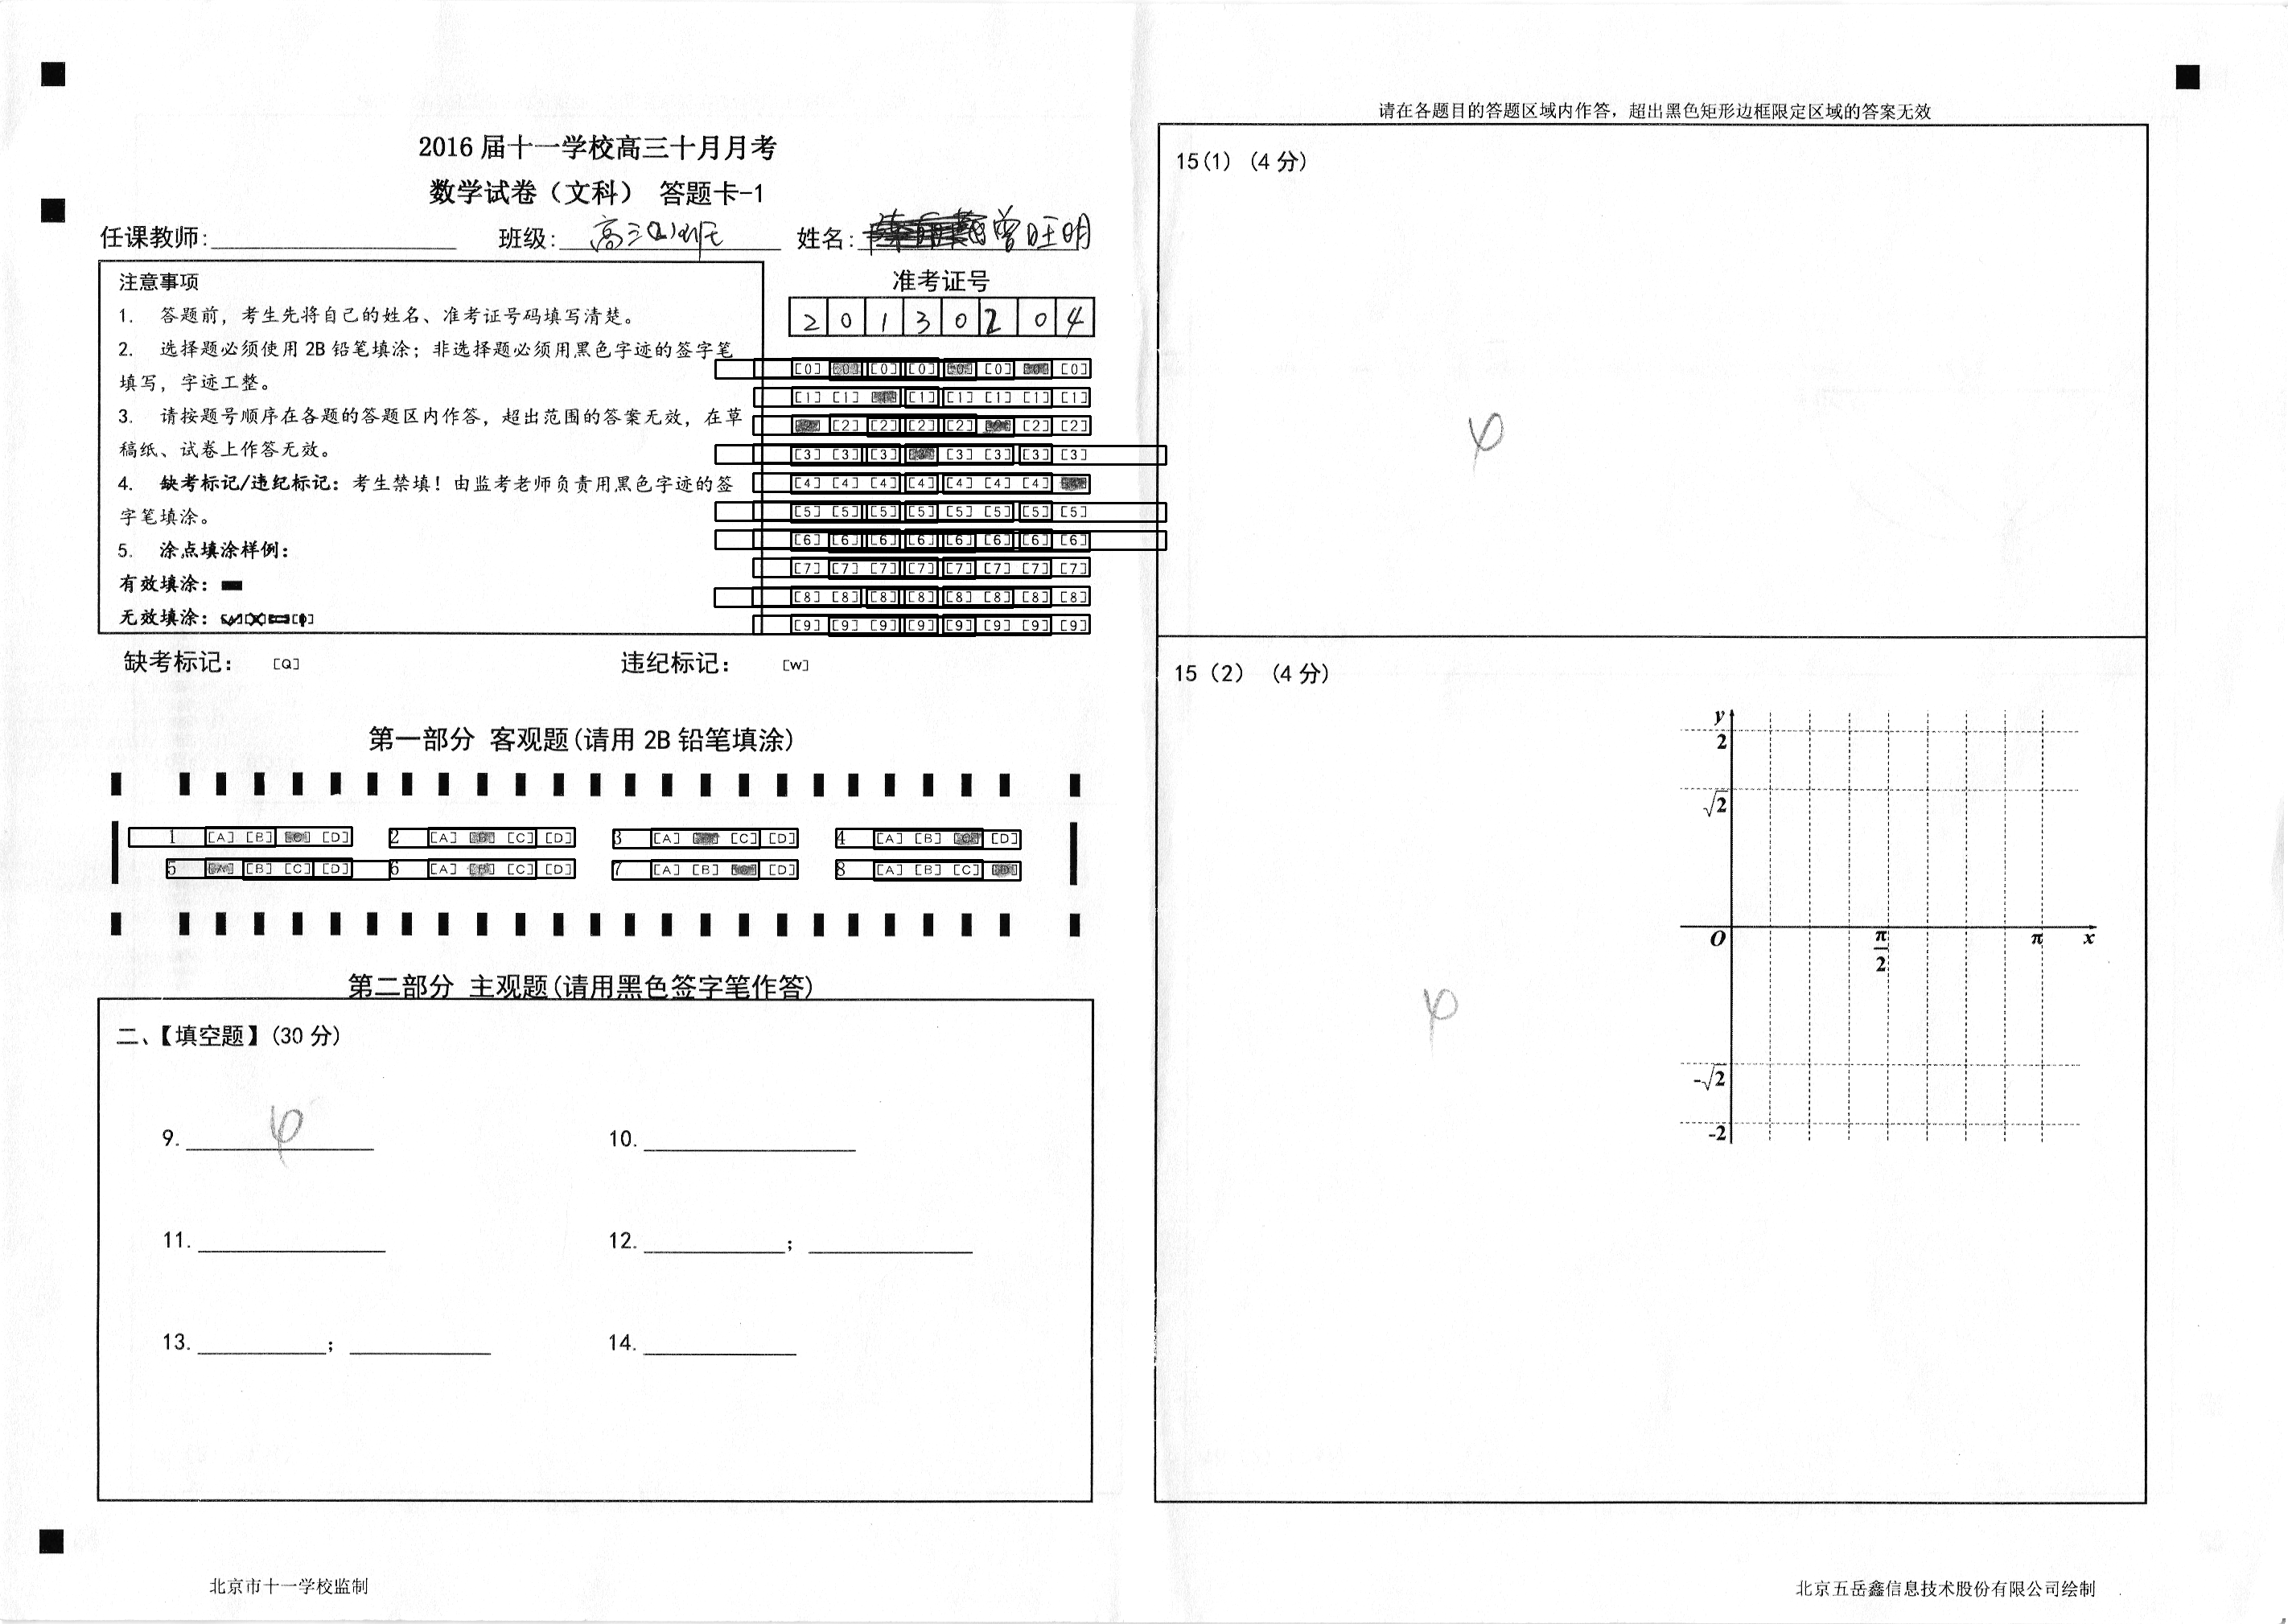 2016 届十一学校高三十月月考
数学试卷（文科） 答题卡-1
任课教师: 班级: 高三(2)班 姓名: 曾旺明
注意事项
1. 答题前，考生先将自己的姓名、准考证号码填写清楚。
2. 选择题必须使用 2B 铅笔填涂；非选择题必须用黑色字迹的签字笔
填写，字迹工整。
3. 请按题号顺序在各题的答题区内作答，超出范围的答案无效，在草
稿纸、试卷上作答无效。
4. 缺考标记/违纪标记：考生禁填！由监考老师负责用黑色字迹的签
字笔填涂。
5. 涂点填涂样例：
有效填涂：
无效填涂：
准考证号
2 0 1 3 0 2 0 4
[0] [0] [0] [0] [0]
[1] [1] [1] [1] [1] [1] [1]
[2] [2] [2] [2] [2] [2]
[3] [3] [3] [3] [3] [3] [3]
[4] [4] [4] [4] [4] [4] [4]
[5] [5] [5] [5] [5] [5] [5] [5]
[6] [6] [6] [6] [6] [6] [6] [6]
[7] [7] [7] [7] [7] [7] [7] [7]
[8] [8] [8] [8] [8] [8] [8] [8]
[9] [9] [9] [9] [9] [9] [9] [9]
缺考标记： [Q] 违纪标记： [W]
第一部分 客观题(请用 2B 铅笔填涂)
1 [A] [B] [D] 2 [A] [C] [D] 3 [A] [C] [D] 4 [A] [B] [D]
5 [B] [C] [D] 6 [A] [C] [D] 7 [A] [B] [D] 8 [A] [B] [C]
第二部分 主观题(请用黑色签字笔作答)
二、【填空题】(30 分)
9. φ 10.
11. 12. ;
13. ; 14.
北京市十一学校监制
请在各题目的答题区域内作答，超出黑色矩形边框限定区域的答案无效
15(1) (4 分)
φ
15（2） (4 分)
y
2
√2
O π/2 π x
φ
-√2
-2
北京五岳鑫信息技术股份有限公司绘制